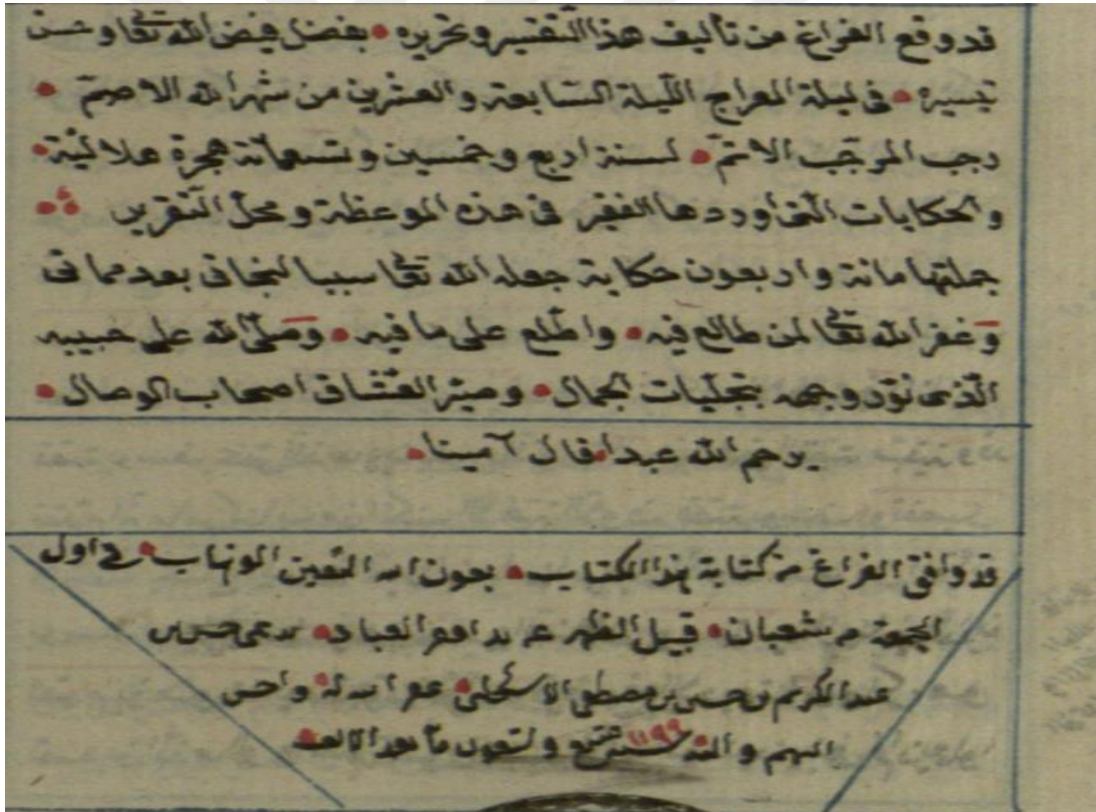 قد وقع الفراغ من تأليف هذا التفسير وتحريره • بفضل فيض الله تعا وحسن
تيسيره • فى ليلة المعراج الليلة السابعة والعشرين من شهر الله الاصم •
رجب المرجب الاتم • لسنة اربع وخمسين وتسعمائة هجرة هلالية •
والحكايات التى اوردها الفقير فى هذه الموعظة ومحل التقرير
جملتها مائة واربعون حكاية جعله الله تعا سببا لنجاتى بعد مماتى
وغفر الله تعا لمن طالع فيه • واطلع على ما فيه • وصلى الله على حبيبه
الذى نور وجهه بتجليات الجمال • وصير العشاق اصحاب الوصال •
يرحم الله عبدا قال آمينا •
قد وافق الفراغ من كتابة هذا الكتاب • بعون الله المعين الوهاب • فى اول
الجمعة من شعبان • قبيل الظهر عن يد افقر العباد • حسن بن
عبد الكريم بن حسن بن مصطفى غفر الله له واحسن
اليهم واليه سنة ١١٩٩ تسع وتسعون مأة بعد الالف